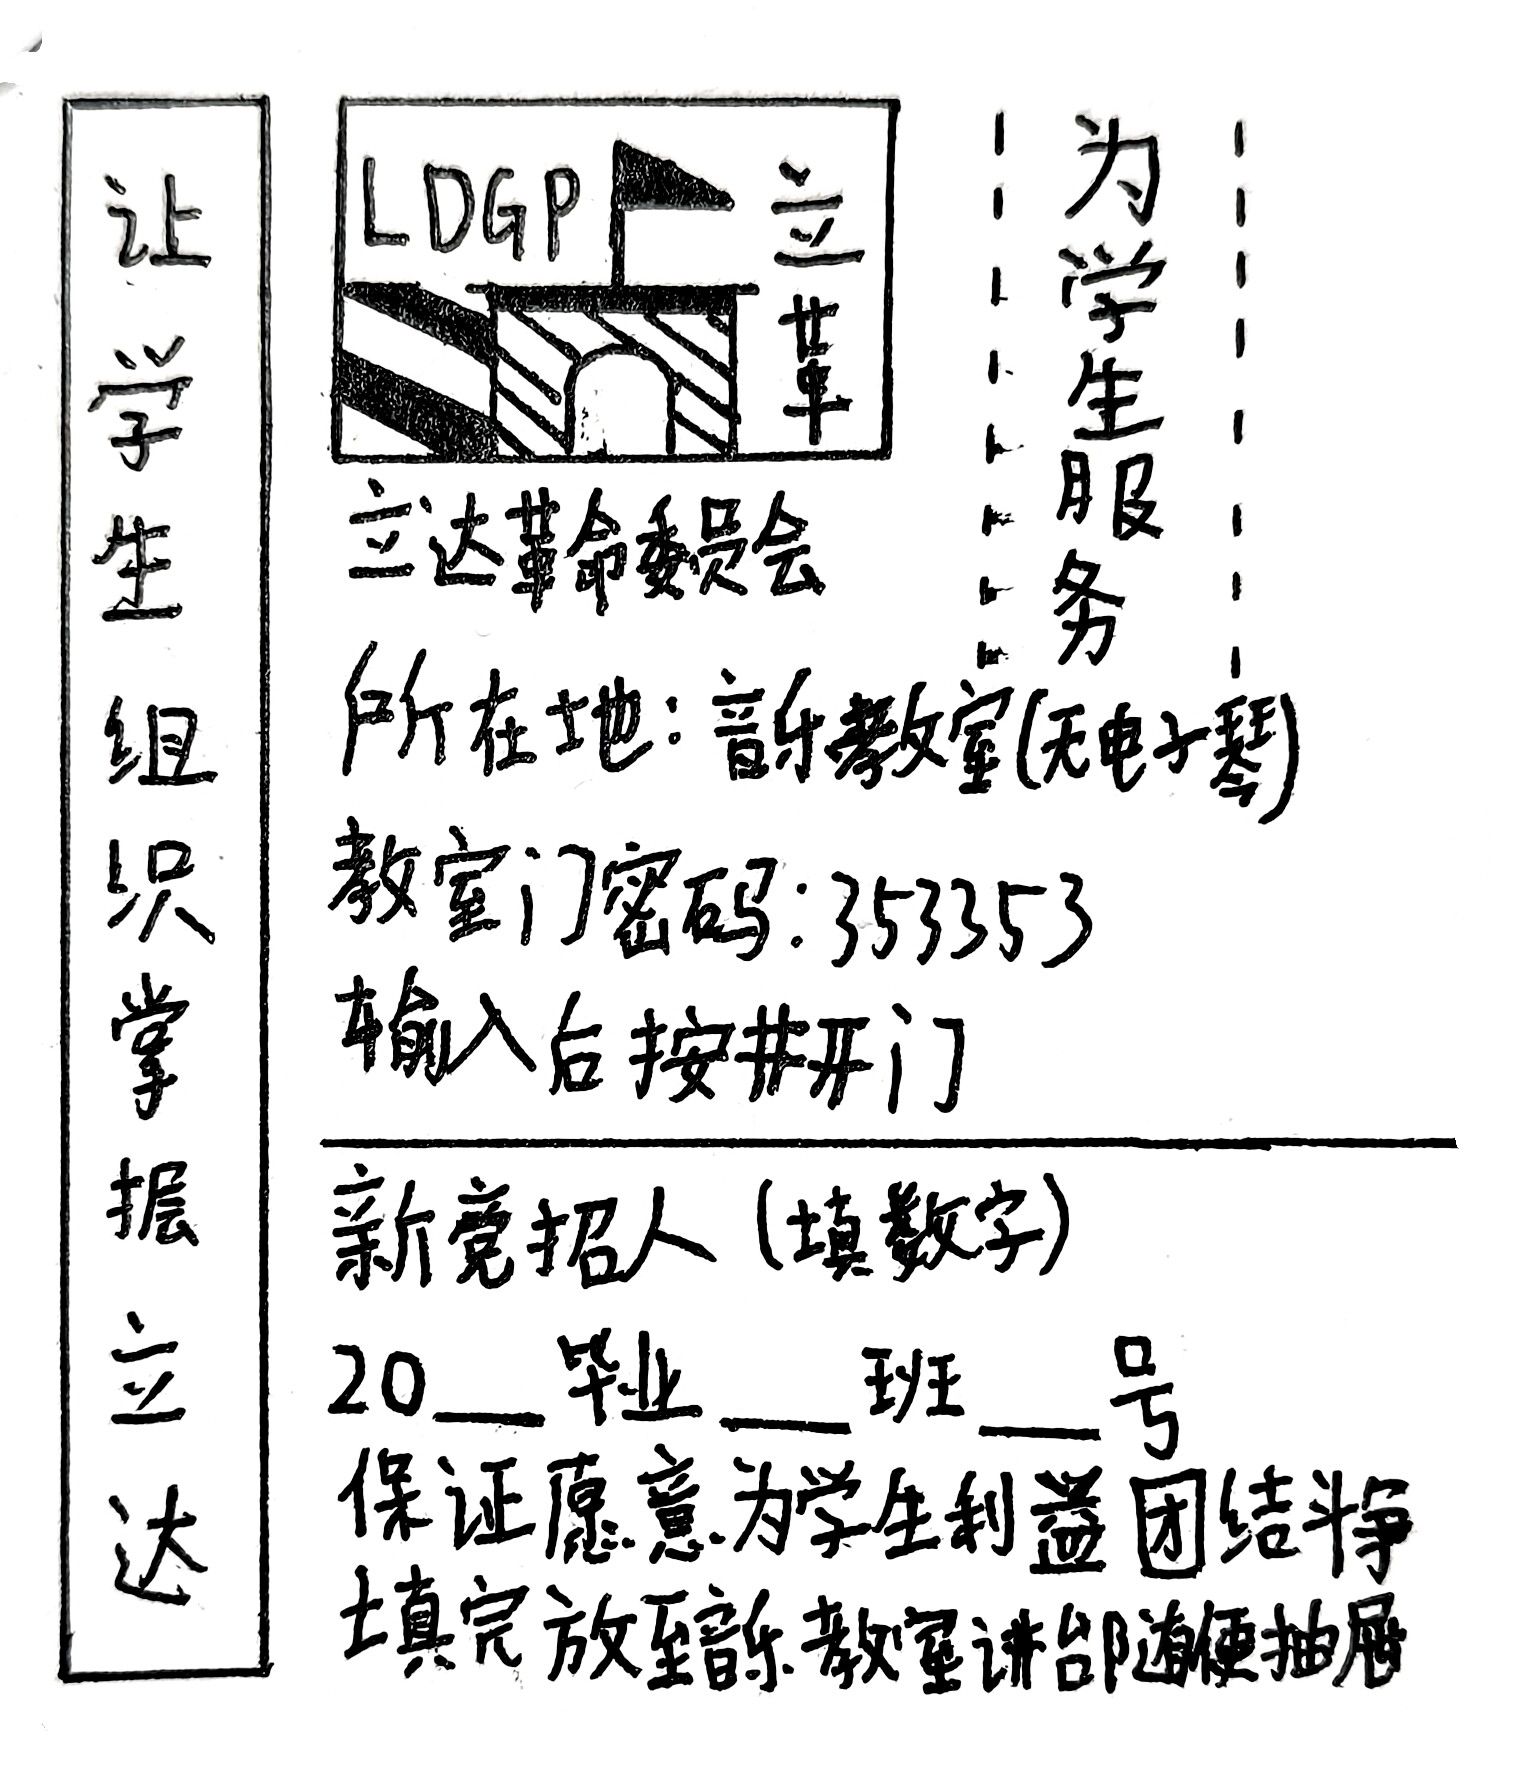 让学生组织掌握立达
LDGP
立革
为学生服务
立达革命委员会
所在地:音乐教室(无电子琴)
教室门密码:353353
输入后按井开门
新竞招人(填数字)
20__毕业__班__号
保证愿意为学生利益团结斗争
填完放至音乐教室讲台随便抽屉